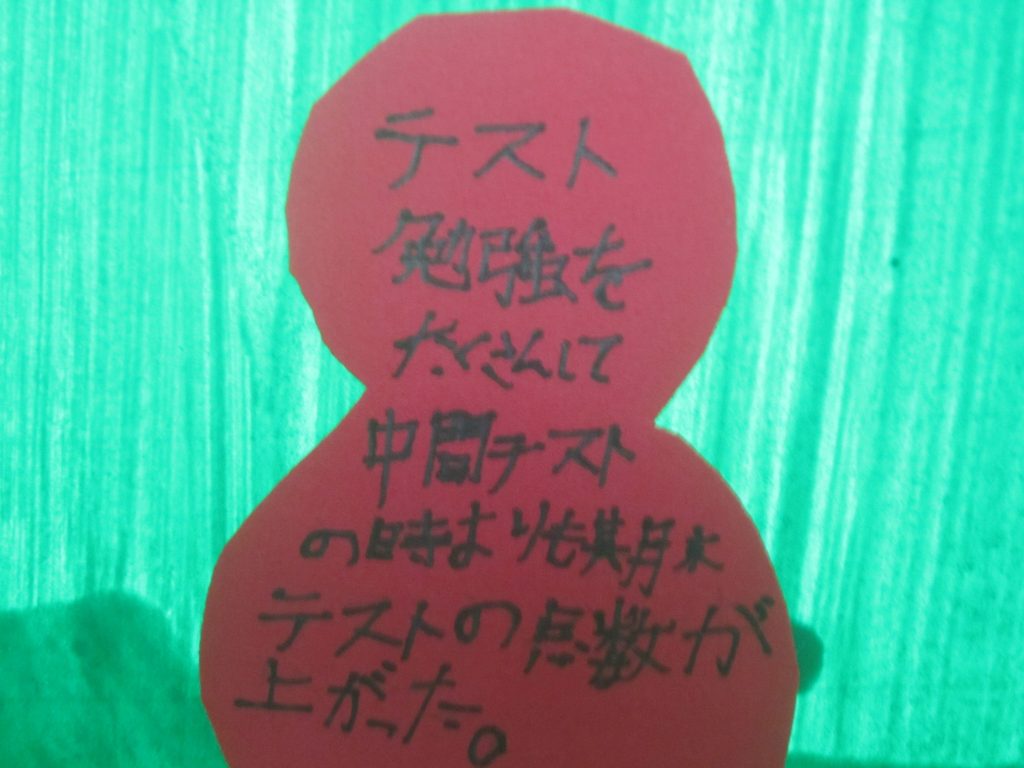 テスト
勉強を
たくさんして
中間テスト
の時よりも期末
テストの点数が
上がった。